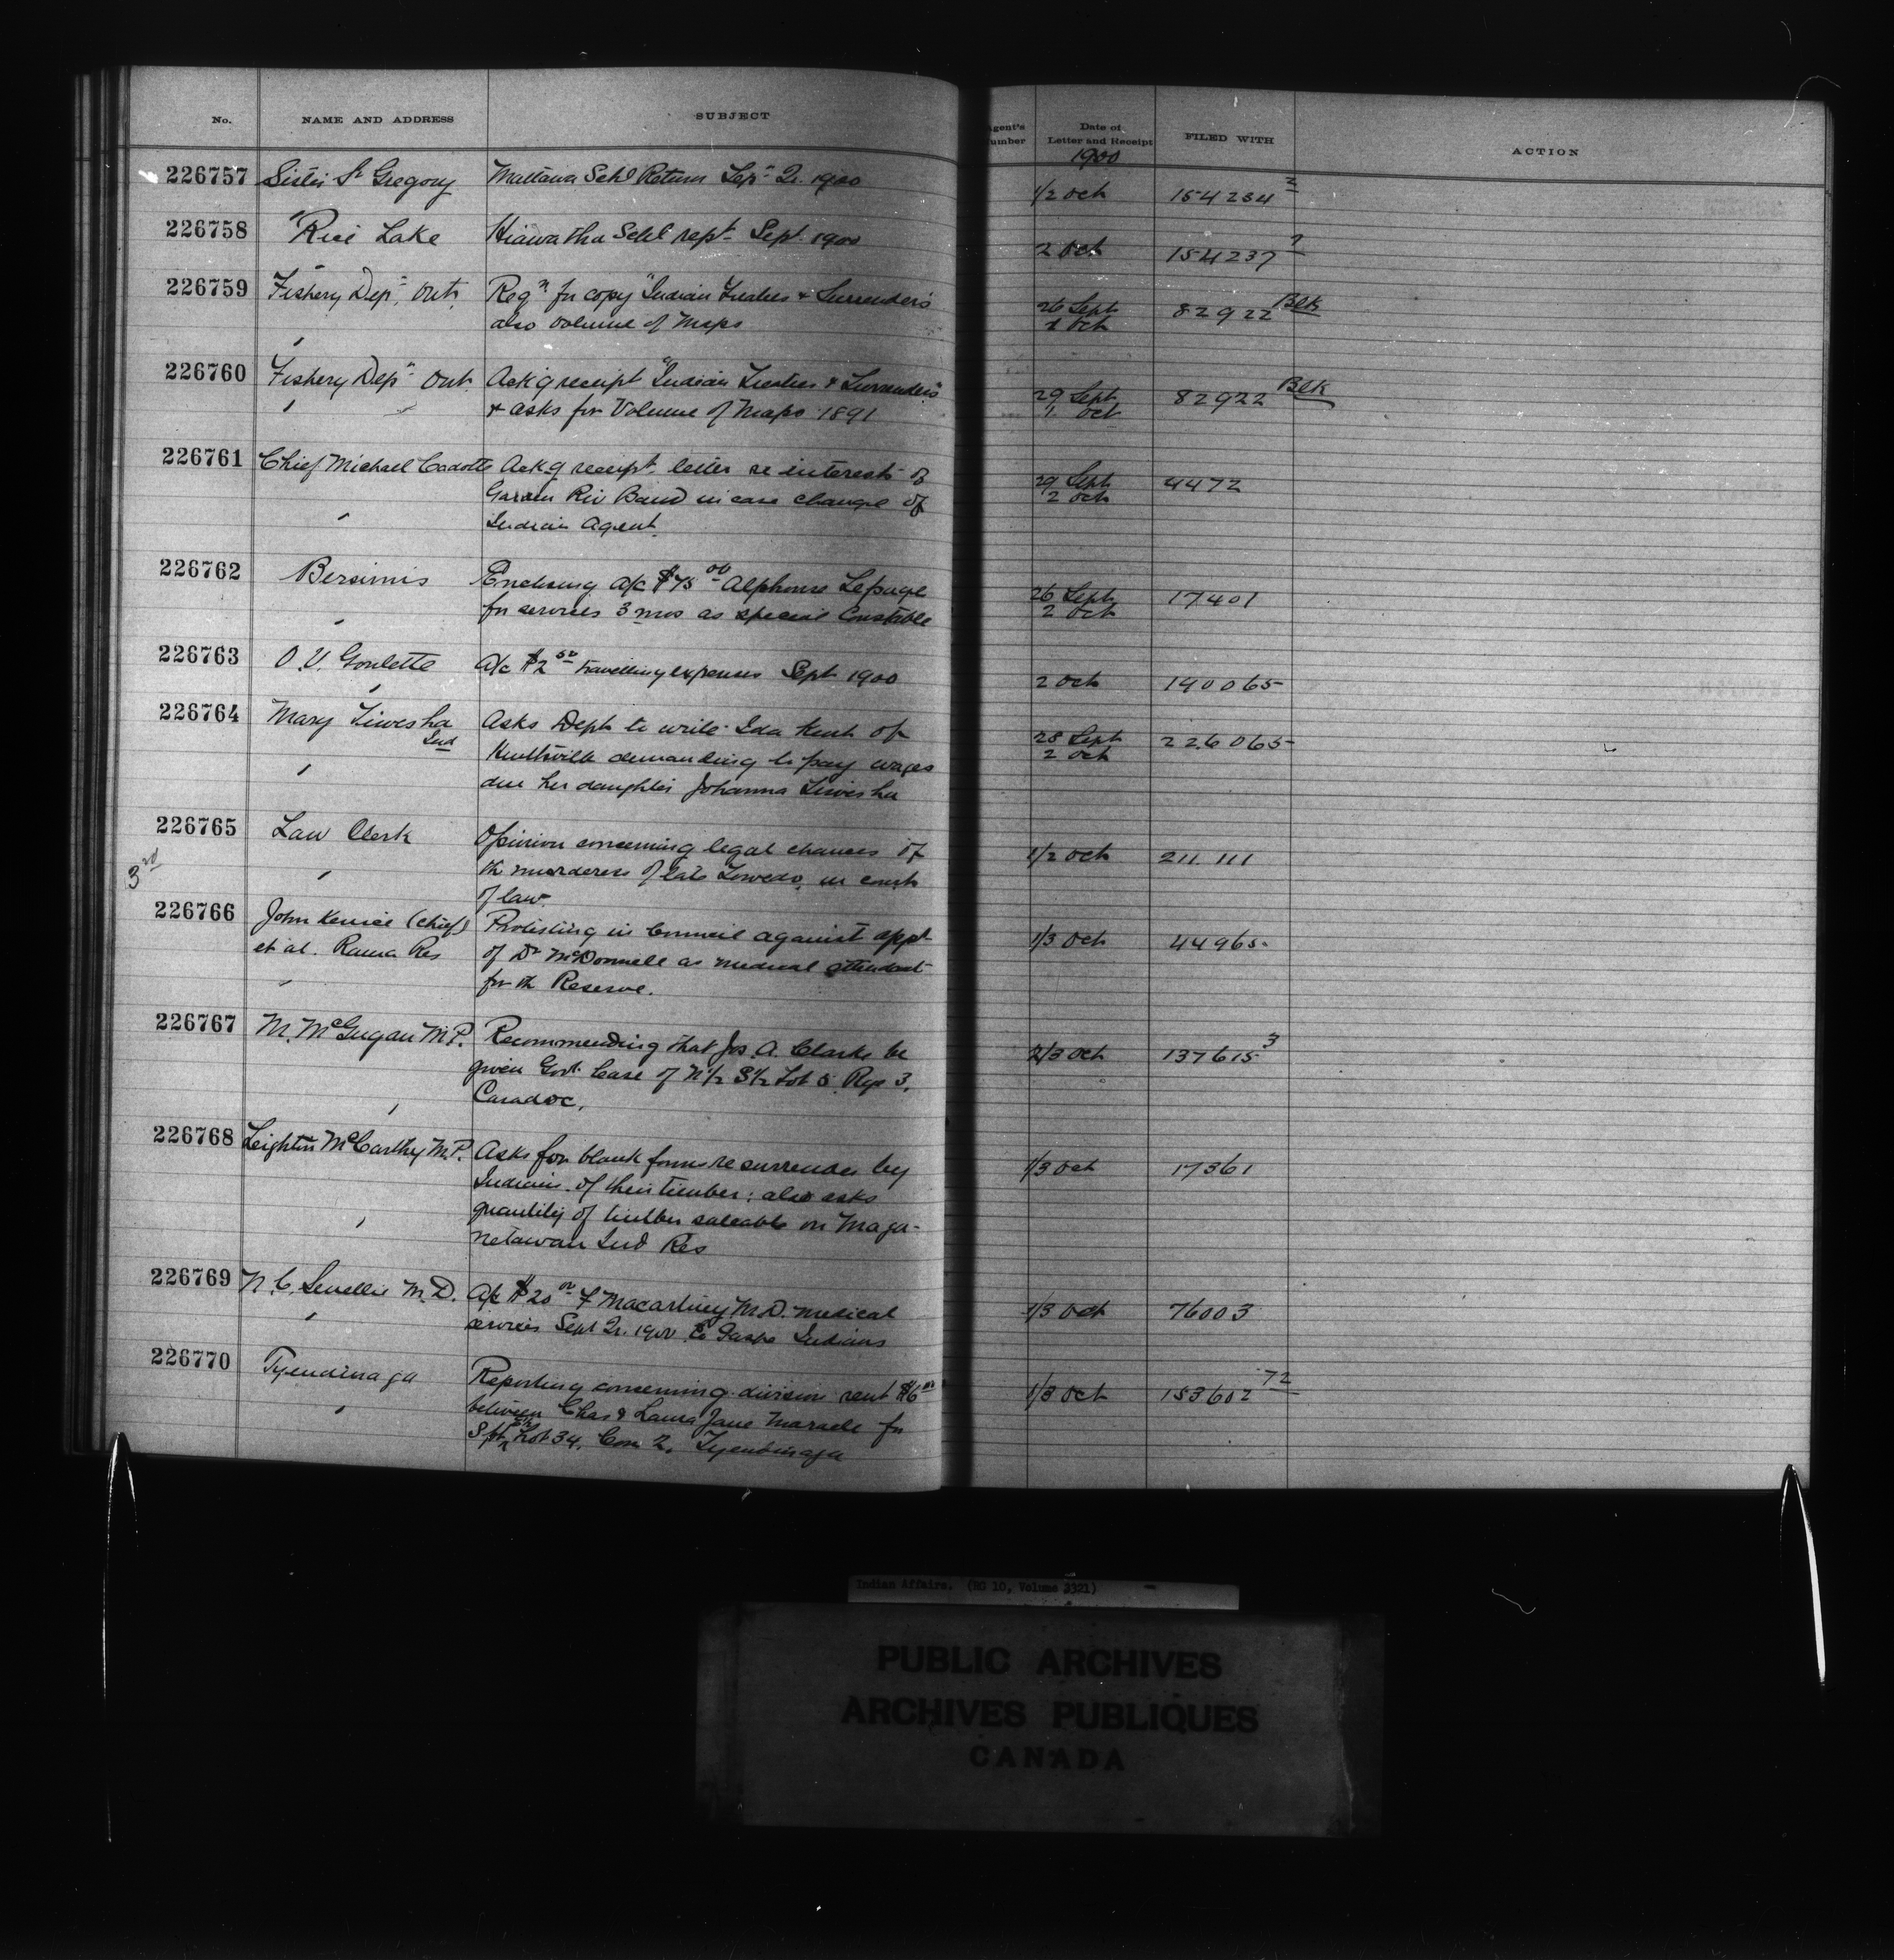 No. NAME AND ADDRESS SUBJECT Agent's Number Date of Letter and Receipt FILED WITH ACTION
1900
226757 Sister St Gregory Mattawa Schl Return Sepr Qr. 1900 1/2 Oct 154234 2
226758 Rice Lake Hiawatha Schl rept Sept. 1900 2 Oct 154237 7
226759 Fishery Dept, Ont. Reqn for copy "Indian Treaties & Surrenders" 26 Sept 82922 Blk
also volume of Maps 2 Oct
226760 Fishery Dept Ont. Ackg receipt "Indian Treaties & Surrenders" 29 Sept 82922 Blk
& asks for Volume of Maps 1891 1 Oct
226761 Chief Michael Cadotte Ackg receipt letter re interests of 29 Sept 4472
Garden Riv Band in case change of 2 Oct
Indian Agent.
226762 Bersimis Enclosing a/c $75 00 Alphonse Lepage 26 Sept 17401
for services 3 mos as special Constable 2 Oct
226763 O. V. Goulette A/c $2 50 travelling expenses Sept 1900 2 Oct 190065
226764 Mary Tiwesha Asks Dept to write Ida Kent of 28 Sept 226065
Ind Huntsville demanding to pay wages 2 Oct
due her daughter Johanna Tiwesha
226765 Law Clerk Opinion concerning legal chances of 1/2 Oct 211111
3rd the murderers of late in court
of law.
226766 John Kenice (Chief) Protesting in Council against appt 1/3 Oct 44965
et al. Rama Res of Dr McDonnell as medical attendant
for the Reserve.
226767 M. McGugan M.P. Recommending that Jos. A. Clarke be 2/3 Oct 137615 3
given Govt. lease of N 1/2 S 1/2 Lot 5 Rge 3,
Caradoc.
226768 Leighton McCarthy M.P. Asks for blank forms re surrender by 1/3 Oct 17361
Indians of their timber: also asks
quantity of timber saleable on Maga-
netawan Ind Res
226769 N. C. M.D. A/c $20 00 F Macartney M.D. medical 1/3 Oct 76003
services Sept Qr. 1900 to Gaspe Indians
226770 Tyendinaga Reporting concerning division rent $6 00 1/3 Oct 153602 72
between Chas & Laura Jane Maracle for
Lot 34, Con 2, Tyendinaga
Indian Affairs. (RG 10, Volume 3321)
PUBLIC ARCHIVES
ARCHIVES PUBLIQUES
CANADA